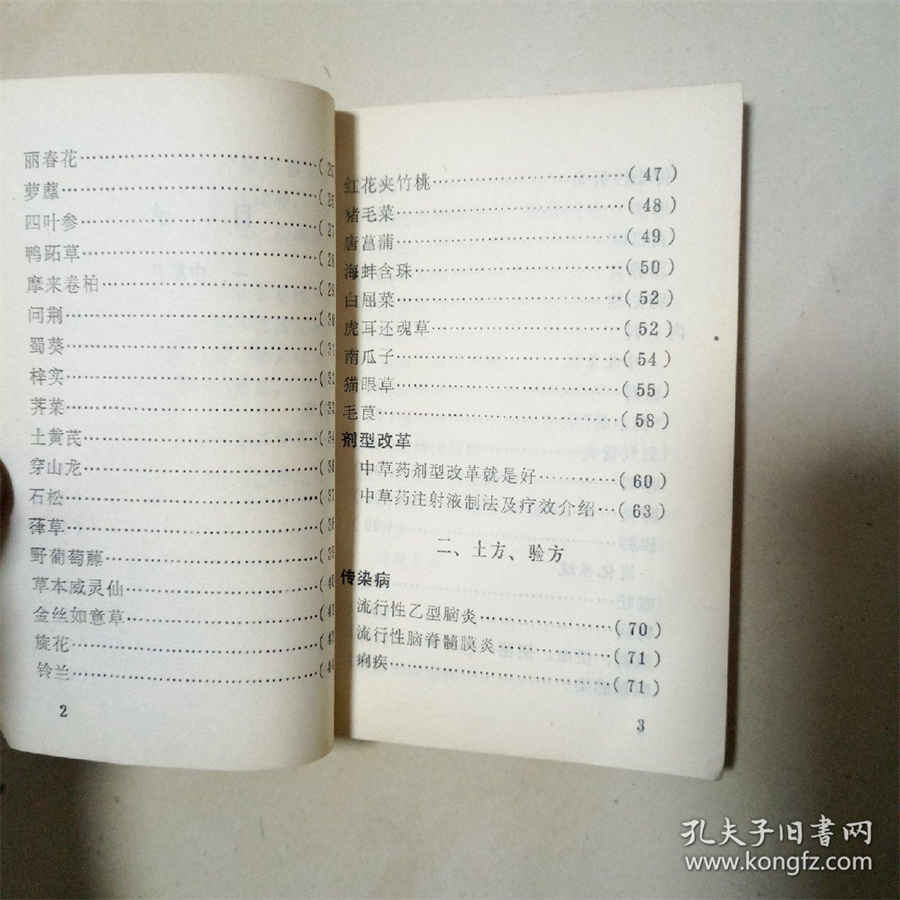 丽春花……(25
萝藦……(26
四叶参……(27
鸭跖草……(28
摩来卷柏……(29
问荆……(30
蜀葵……(31
梓实……(32
荠菜……(33
土黄芪……(34
穿山龙……(36
石松……(37
葎草……(38
野葡萄藤……(39
草本威灵仙……(40
金丝如意草……(4
旋花……(4
铃兰……(4
2
红花夹竹桃……(47)
猪毛菜……(48)
唐菖蒲……(49)
海蚌含珠……(50)
白屈菜……(52)
虎耳还魂草……(52)
南瓜子……(54)
猫眼草……(55)
毛茛……(58)
剂型改革
中草药剂型改革就是好……(60)
中草药注射液制法及疗效介绍…(63)
二、土方、验方
传染病
流行性乙型脑炎……(70)
流行性脑脊髓膜炎……(71)
痢疾……(71)
3
孔夫子旧书网
www.kongfz.com